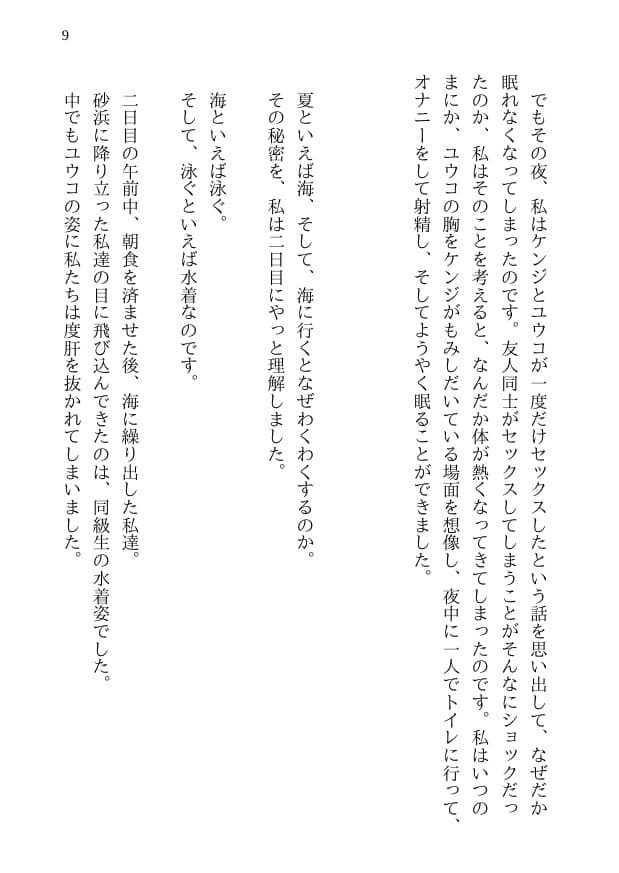 9
でもその夜、私はケンジとユウコが一度だけセックスしたという話を思い出して、なぜだか
眠れなくなってしまったのです。友人同士がセックスしてしまうことがそんなにショックだっ
たのか、私はそのことを考えると、なんだか体が熱くなってきてしまったのです。私はいつの
まにか、ユウコの胸をケンジがもみしだいている場面を想像し、夜中に一人でトイレに行って、
オナニーをして射精し、そしてようやく眠ることができました。
夏といえば海、そして、海に行くとなぜわくわくするのか。
その秘密を、私は二日目にやっと理解しました。
海といえば泳ぐ。
そして、泳ぐといえば水着なのです。
二日目の午前中、朝食を済ませた後、海に繰り出した私達。
砂浜に降り立った私達の目に飛び込んできたのは、同級生の水着姿でした。
中でもユウコの姿に私たちは度肝を抜かれてしまいました。